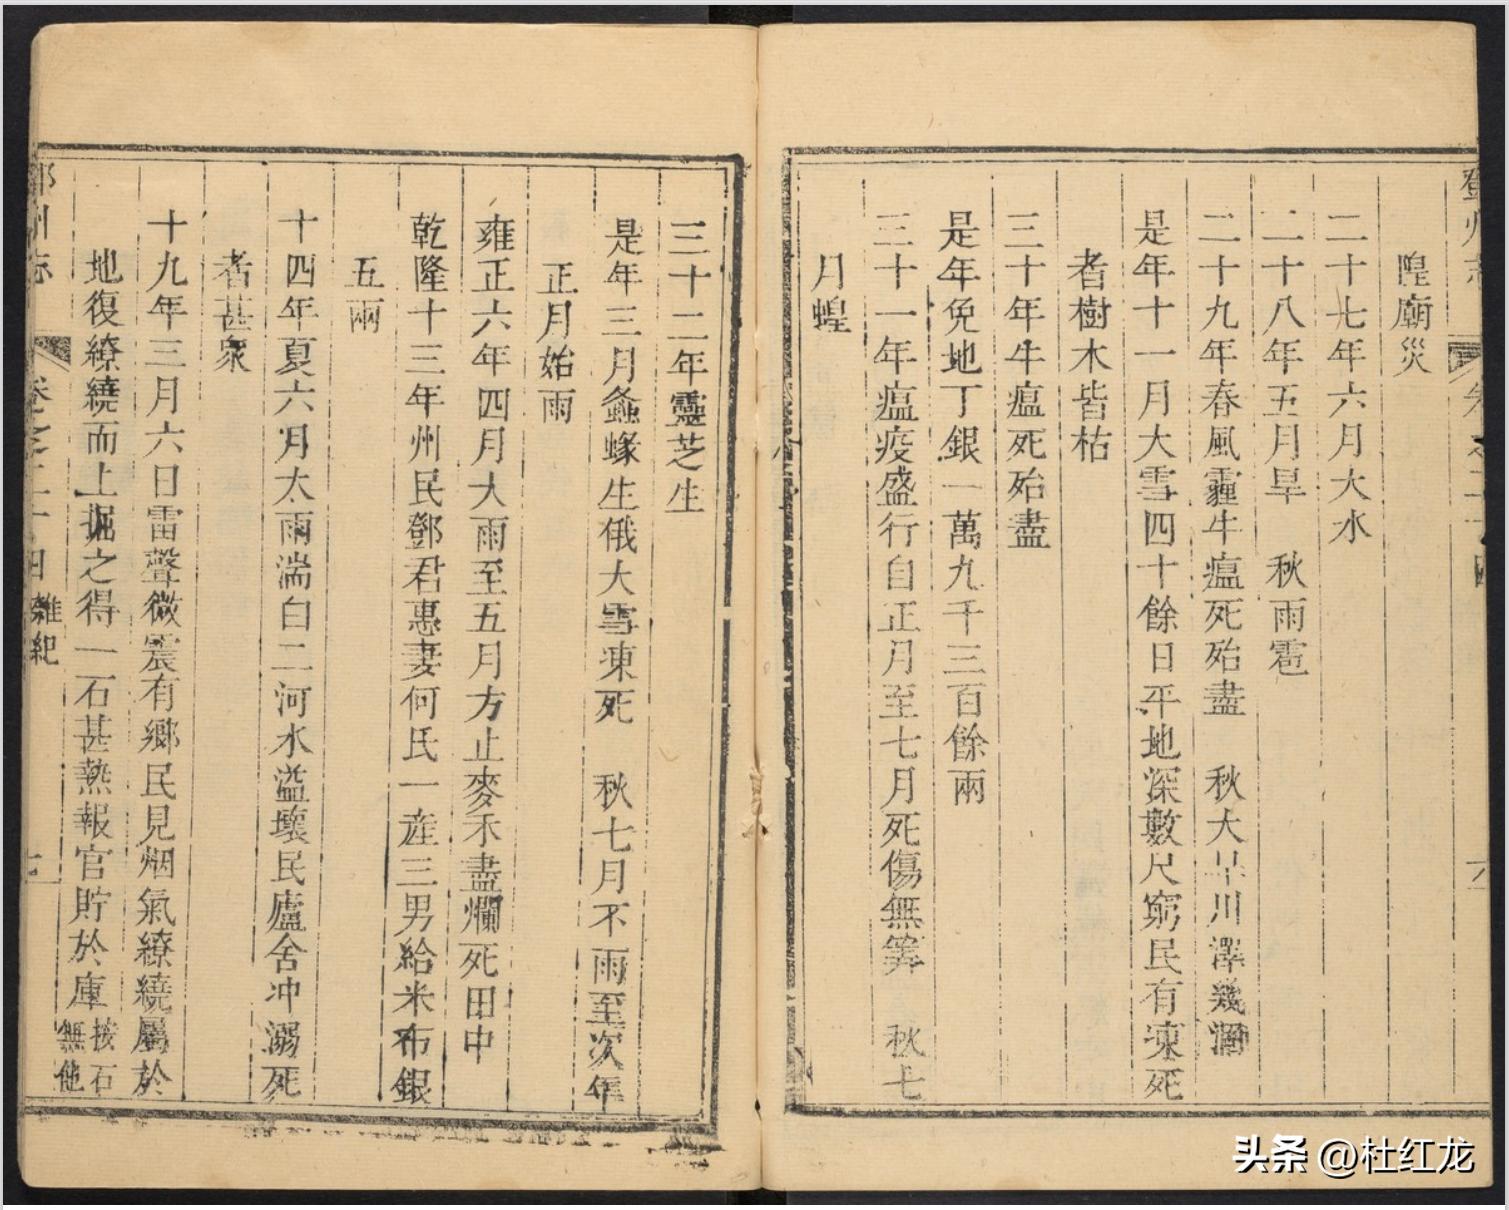 鄧州志
卷之二十四
六
隍廟災
二十七年六月大水
二十八年五月旱　秋雨雹
二十九年春風霾牛瘟死殆盡　秋大旱川澤幾涸
是年十一月大雪四十餘日平地深數尺窮民有凍死
者樹木皆枯
三十年牛瘟死殆盡
是年免地丁銀一萬九千三百餘兩
三十一年瘟疫盛行自正月至七月死傷無筭　秋七
月蝗
三十二年靈芝生
是年三月螽蝝生俄大雪凍死　秋七月不雨至次年
正月始雨
雍正六年四月大雨至五月方止麥禾盡爛死田中
乾隆十三年州民鄧君惠妻何氏一産三男給米布銀
五兩
十四年夏六月太雨湍白二河水溢壞民廬舍冲溺死
者甚衆
十九年三月六日雷聲微震有鄉民見烟氣繚繞屬於
地復繚繞而上掘之得一石甚熱報官貯於庫
按石
無他
鄧州志
卷之二十四
雜紀
七
头条 @杜红龙